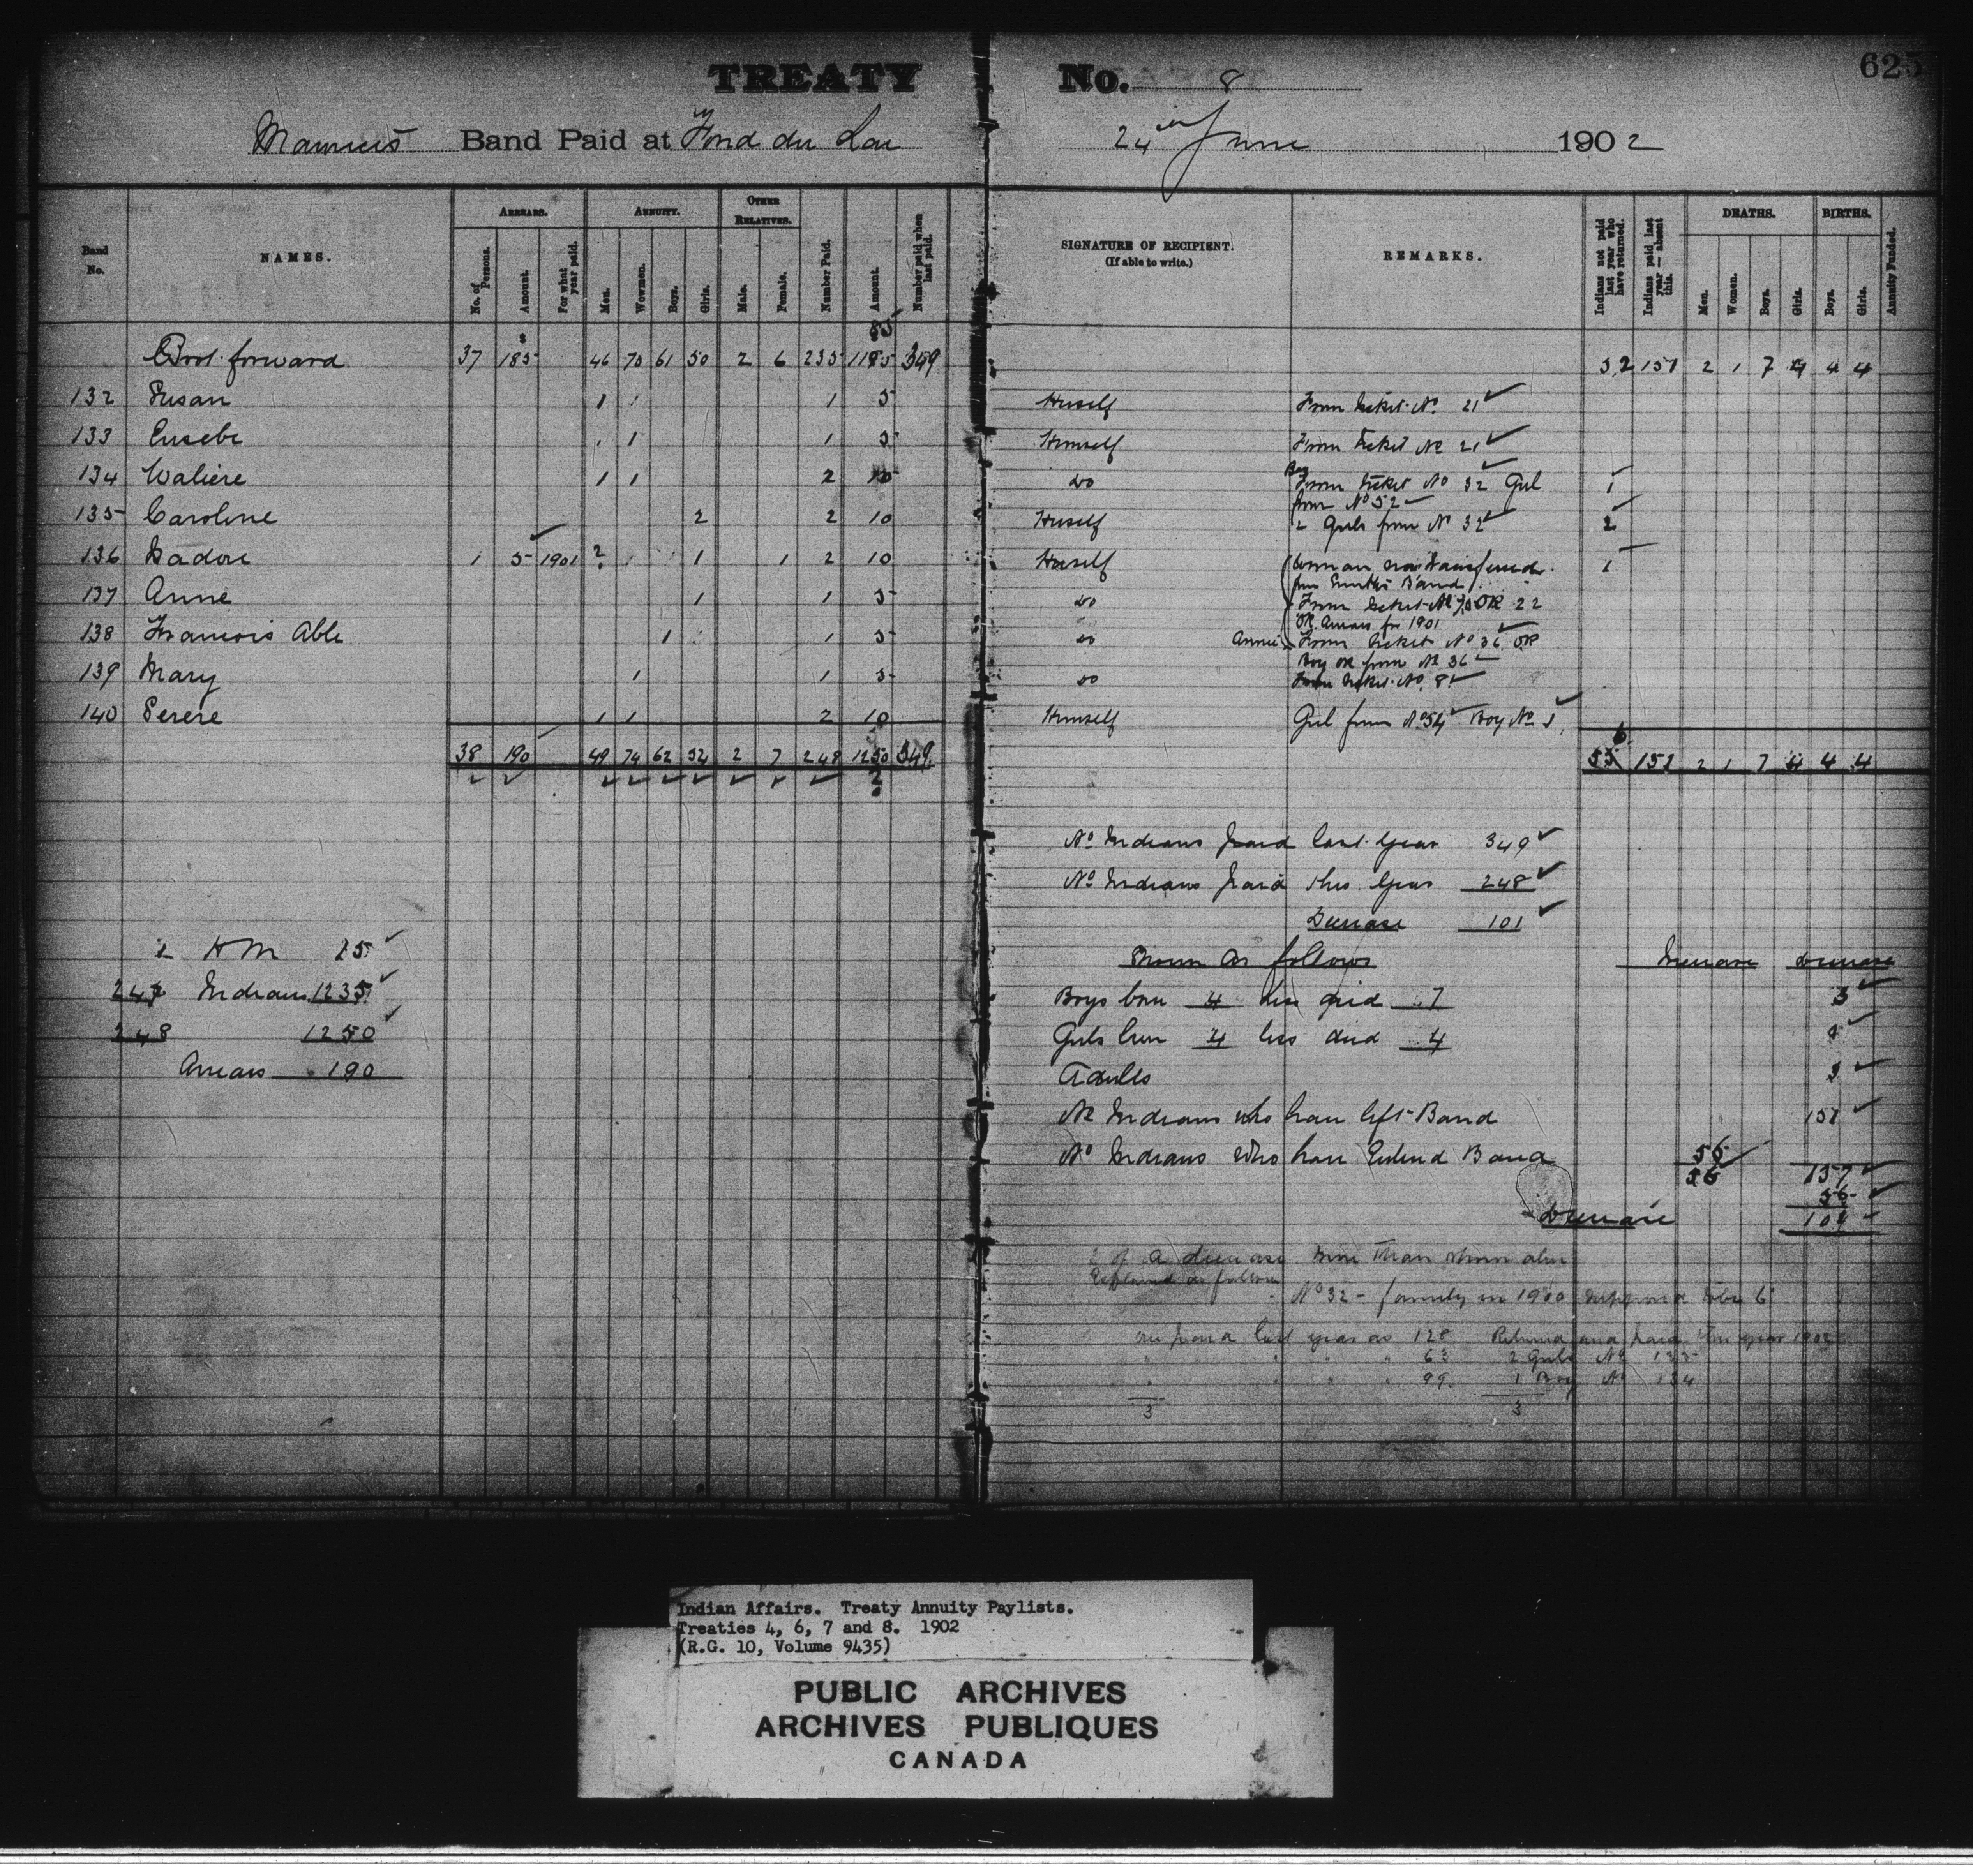 625
TREATY No. 8
Band Paid at Fond du Lac 24th June 1902
Band No. NAMES. ARREARS. ANNUITY. OTHER RELATIVES. Number Paid. Amount. Number paid when last paid. SIGNATURE OF RECIPIENT. (If able to write.) REMARKS. Indians not paid last year who have returned. Indians paid last year — absent this. DEATHS. BIRTHS. Annuity Funded.
No. of Persons. Amount. For what year paid. Men. Wowmen. Boys. Girls. Male. Female. Men. Women. Boys. Girls. Boys. Girls.
Brot forward 37 185 46 70 61 50 2 6 235 349 52 151 2 1 7 4 4 4
132 Susan 1 1 5 Herself From ticket No 21 ✓
133 Eusebe 1 1 5 Himself From ticket No 21 ✓
134 Waliere 1 1 2 10 do Boy From ticket No 32 Girl 1
from No 52 ✓
135 Caroline 2 2 10 Herself 2 Girls from No 32 ✓ 2
136 Isadore 1 5 1901 1 1 2 10 Herself Woman now transferred 1
from Band
137 Anne 1 1 5 do From ticket No OK 22
OK Arrears for 1901
138 Francois Able 1 1 5 do Annie From ticket No 36 OK
Boy OK from No 36 ✓
139 Mary 1 1 5 do From ticket No. 81 ✓
140 Perere 1 1 2 10 Himself Girl from No 54 ✓ Boy No 1
38 190 49 74 62 52 2 7 248 1250 349 151 2 1 7 4 4 4
No Indians paid last year 349 ✓
No Indians paid this year 248 ✓
Decrease 101 ✓
Shown as follows Increase Decrease
2 HM 15 ✓
247 Indians 1235 ✓
248 1250 ✓
Arrears 190
Boys born 4 less died 7 3 ✓
Girls born 4 less died 4
Adults 3 ✓
No Indians who have left Band 151 ✓
No Indians who have Entered Band 56
56 157 ✓
56 ✓
Decrease 101
of a decrease more than shown above
Explained as follows
No 32 - family in 1900 supposed to be 6
one paid last year as 128 Returned and paid this year 1902
" " " " 63 2 Girls No 135
" " " " 99 1 Boy No 134
3 3
Indian Affairs. Treaty Annuity Paylists.
Treaties 4, 6, 7 and 8. 1902
(R.G. 10, Volume 9435)
PUBLIC ARCHIVES
ARCHIVES PUBLIQUES
CANADA